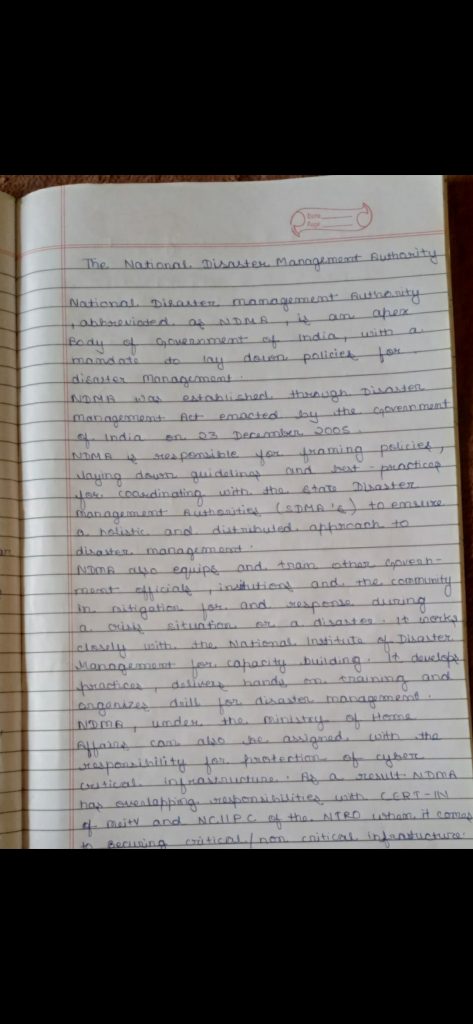 Date
Page
The National Disaster Management Authority
National Disaster management Authority
, abbreviated as NDMA, is an apex
Body of Government of India, with a
mandate to lay down policies for
disaster management.
NDMA was established through Disaster
Management Act enacted by the Government
of India on 23 December 2005.
NDMA is responsible for framing policies,
laying down guidelines and best-practices
for coordinating with the State Disaster
Management Authorities (SDMA's) to ensure
a holistic and distributed approach to
disaster management.
NDMA also equips and train other Govern-
ment officials, institutions and the community
in mitigation for and response during
a crisis situation or a disaster. It works
closely with the National Institute of Disaster
Management for capacity building. It develops
practices, delivers hands on training and
organizes drill for disaster management.
NDMA, under the ministry of Home
Affairs can also be assigned, with the
responsibility for protection of cyber
critical infrastructure. As a result NDMA
has overlapping responsibilities with CERT-IN
of meitv and NCIIPC of the NTRO when it comes
to securing critical/non critical infrastucture.